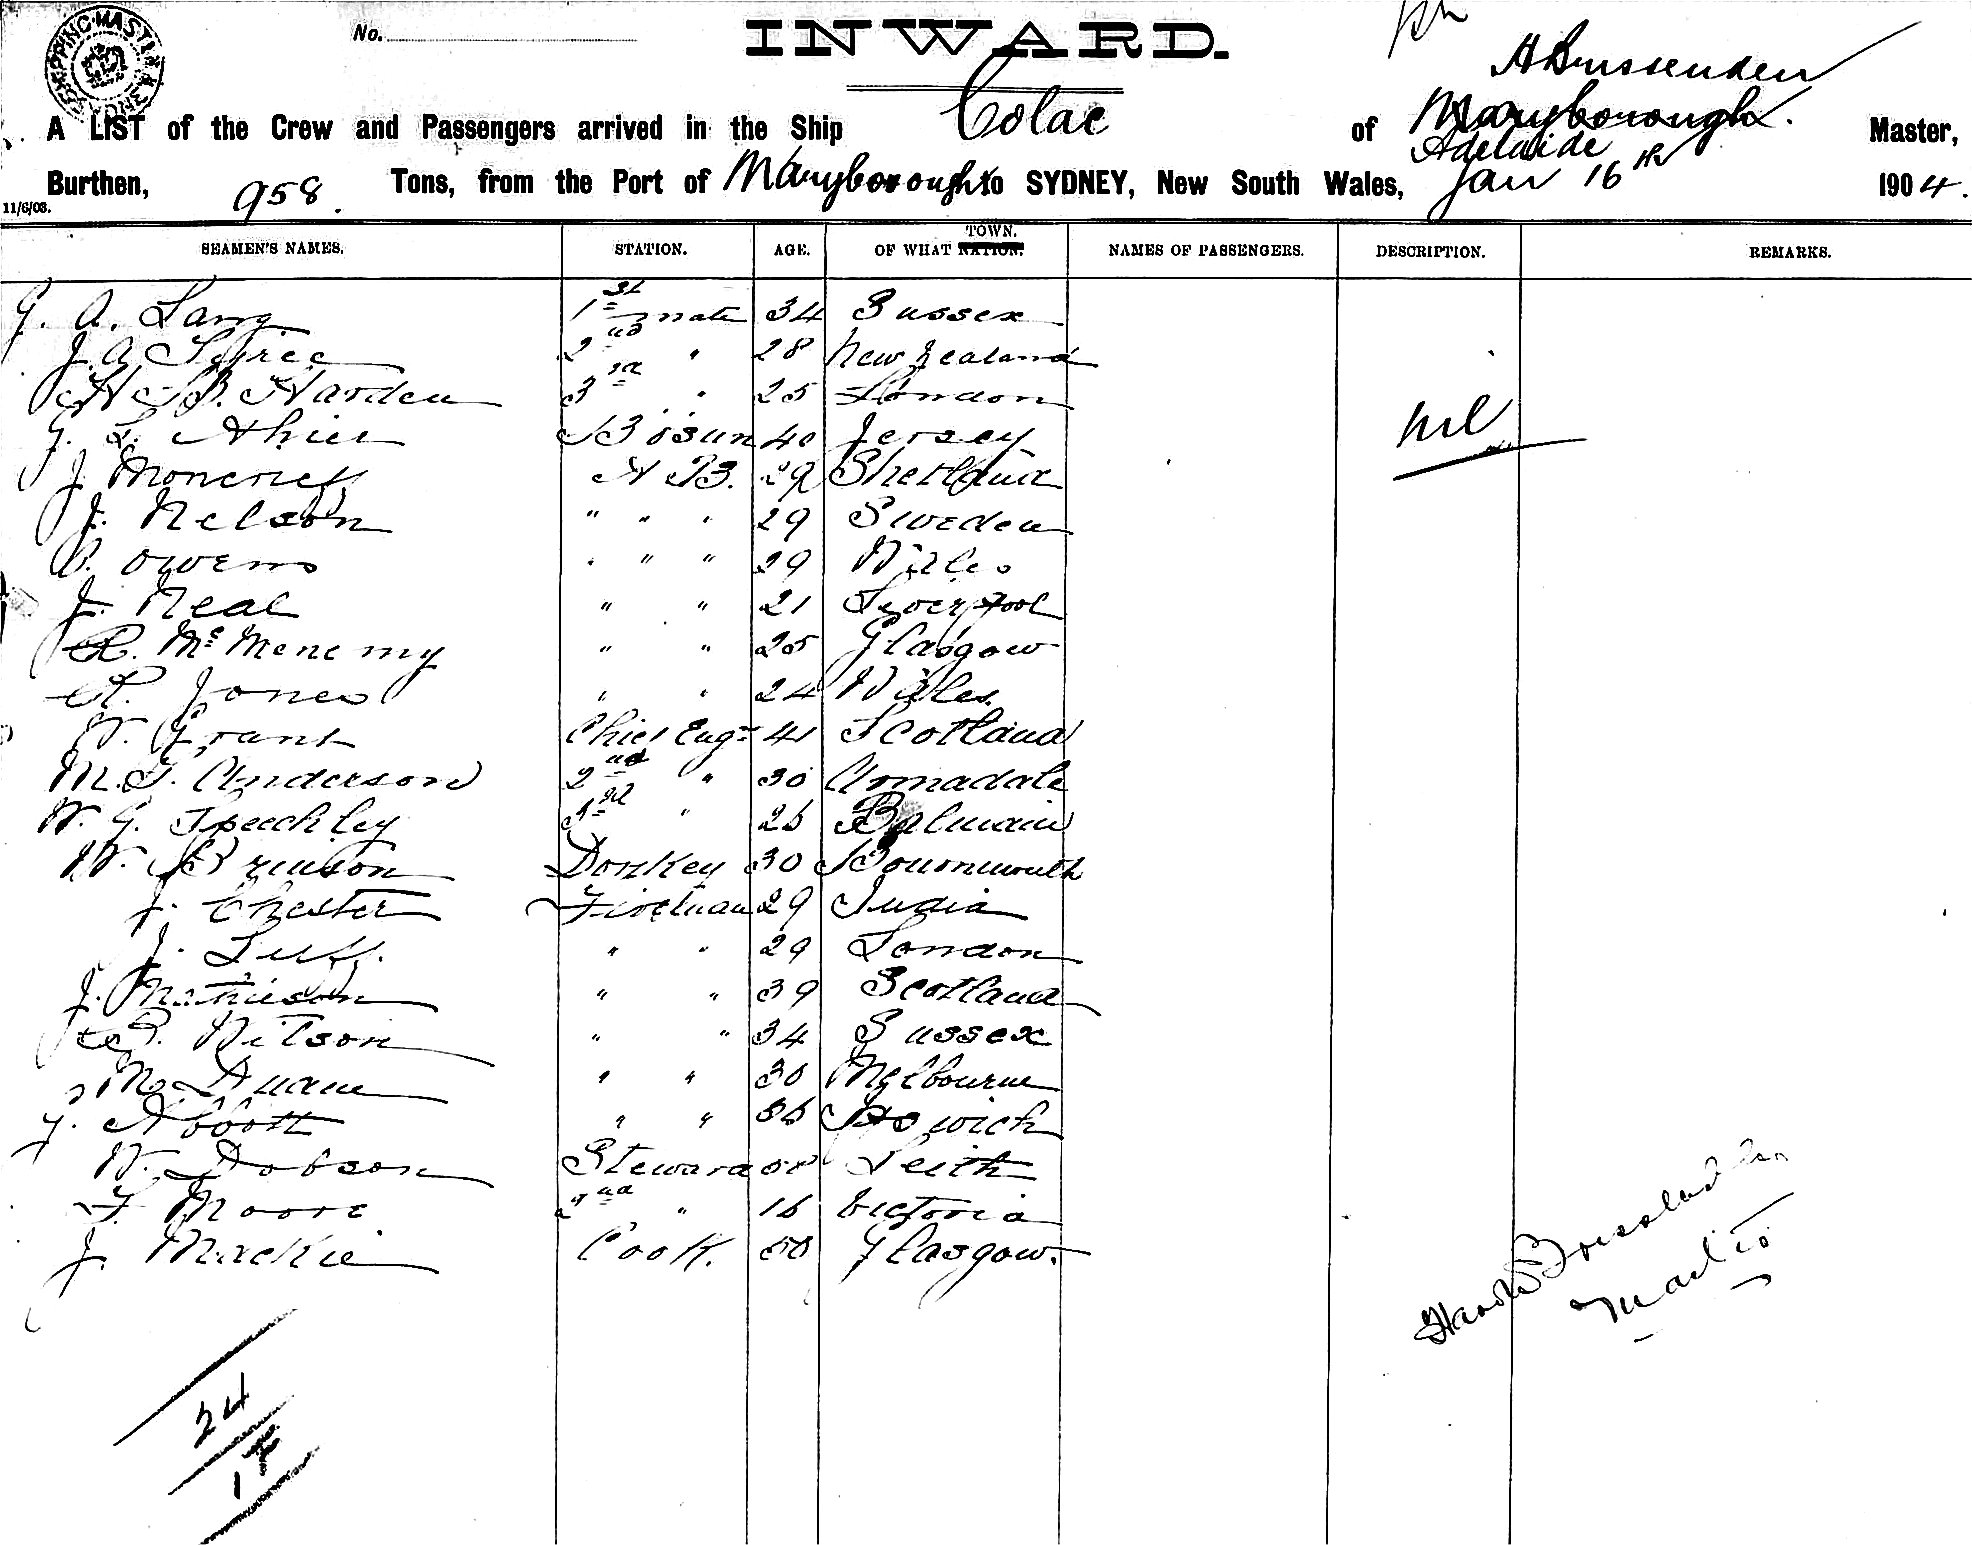 No.
INWARD.
A Brussenden
A LIST of the Crew and Passengers arrived in the Ship Colac of Maryborough Master,
Adelaide
Burthen, 958. Tons, from the Port of Maryborough to SYDNEY, New South Wales, Jan 16th 1904.
11/6/03.
SEAMEN'S NAMES. STATION. AGE. OF WHAT NATION. TOWN. NAMES OF PASSENGERS. DESCRIPTION. REMARKS.
G. A. Lang 1st mate 34 Sussex
J. A. 2nd " 28 New Zealand
B. Harden 3rd " 25 London
G. L. Ahier Bosun 40 Jersey
J. Moncrieff A B. 29 Shetland
J. Nelson " " " 29 Sweden
O. Owens " " " 29 Wales
J. Neal " " 21 Liverpool
R. McMenemy " " 25 Glasgow
R. Jones " " 24 Wales.
W. Grant Chief Engr 41 Scotland
M. G. Anderson 2nd " 30 Armadale
W. G. Speechley 3rd " 25 Balmain
W. Brinson Donkey 30 Bournmouth
J. Chester Fireman 29 India
J. Luff. " " 29 London
J. Mathieson " " 39 Scotland
Wilson " " 34 Sussex
M. Duane " " 30 Melbourne
G. Abbott " " 35
W. Dobson Steward Leith
F. Moore 2nd " 16 Victoria
J. Mackie Cook. 50 Glasgow.
nil
Master
24